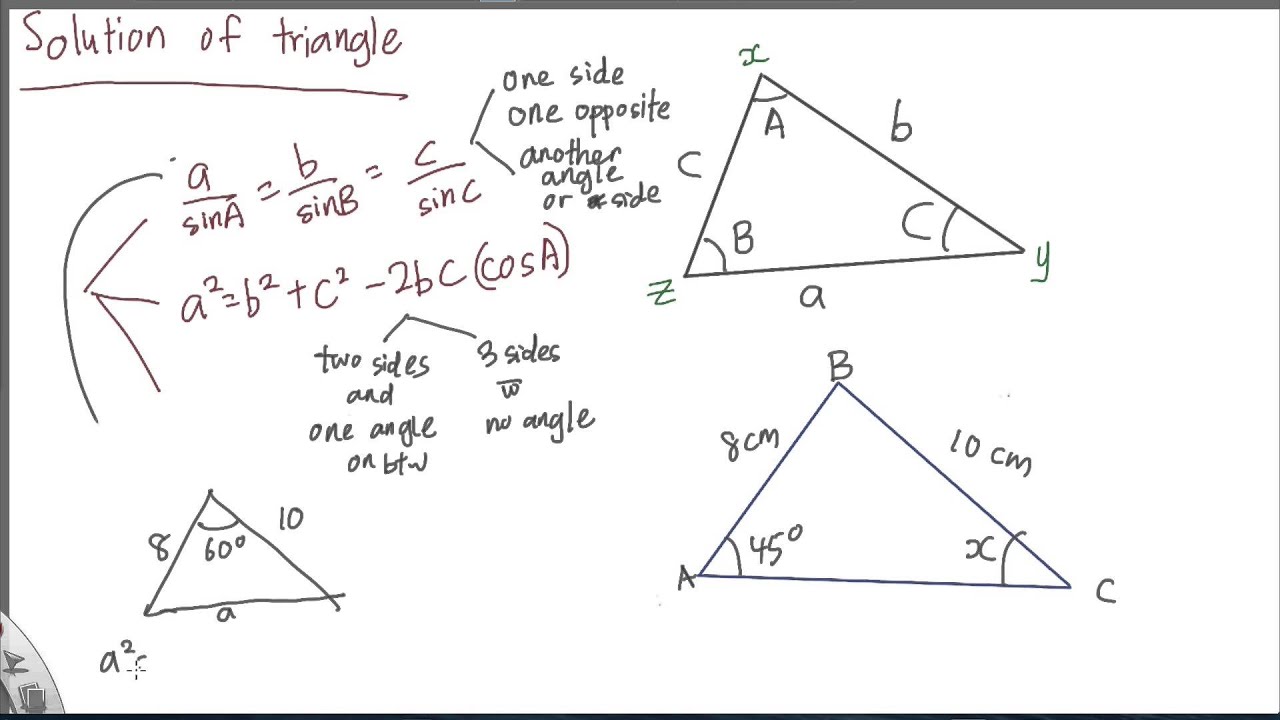 Solution of triangle
a/sinA = b/sinB = c/sinC
one side
one opposite
another
angle
or side
a² = b² + c² - 2bc(cosA)
two sides
and
one angle
on btw
3 sides
w̅
no angle
x
A
b
c
B
C
z
a
y
B
8cm
10 cm
A
45°
x
C
8
60°
10
a
a²=